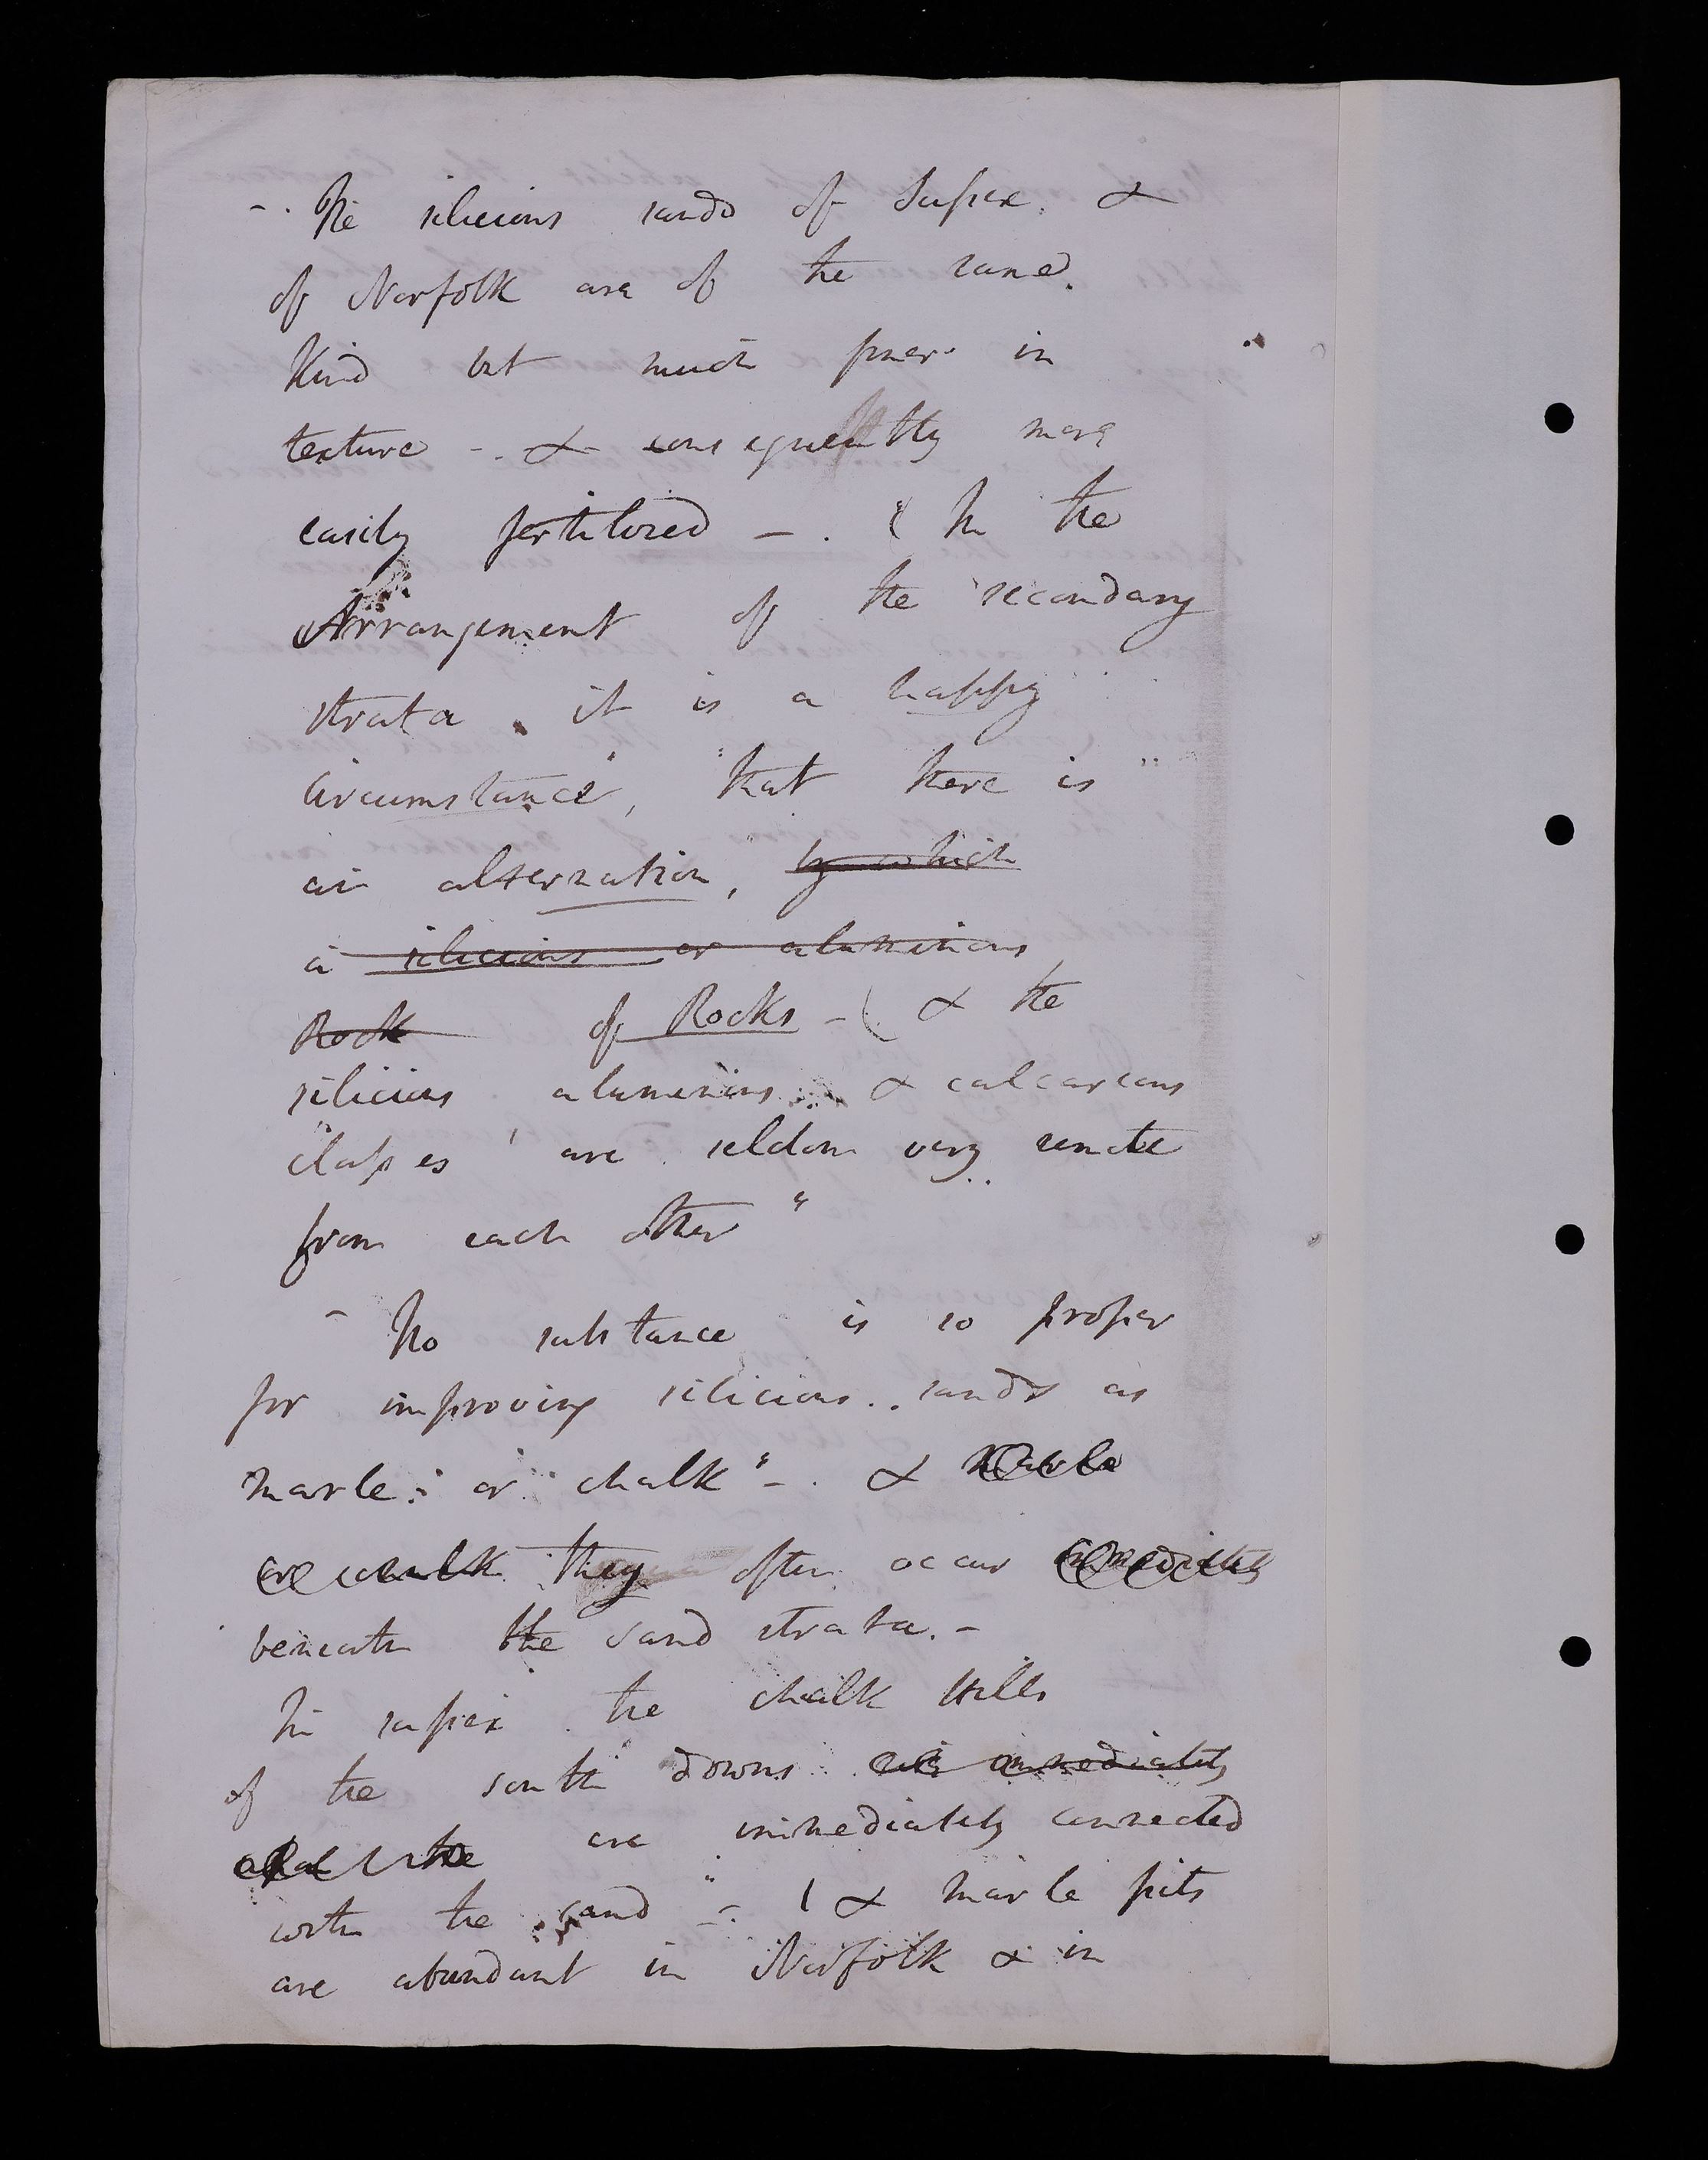 -. The silicious sands of Sussex. &
of Norfolk are of the same.
Kind but much finer in
texture -. & consequently more
easily fertilized -. ( In the
Arrangement of the secondary
strata. it is a happy
Circumstance, "that there is"
an alternation, by which
a silicious or aluminous
Rock of Rocks - ( & the
silicious aluminous & calcareous
classes ' are seldom very remote
from each other "
- No substance is so proper
for improving silicious.. sands as
marle: or chalk" -. & Marle
or chalk they often occur immediately
beneath the sand strata. -
In sussex the chalk Hills
of the south downs immediately
are immediately connected
with the sand" -. ( & Marle pits
are abundant in Norfolk & in